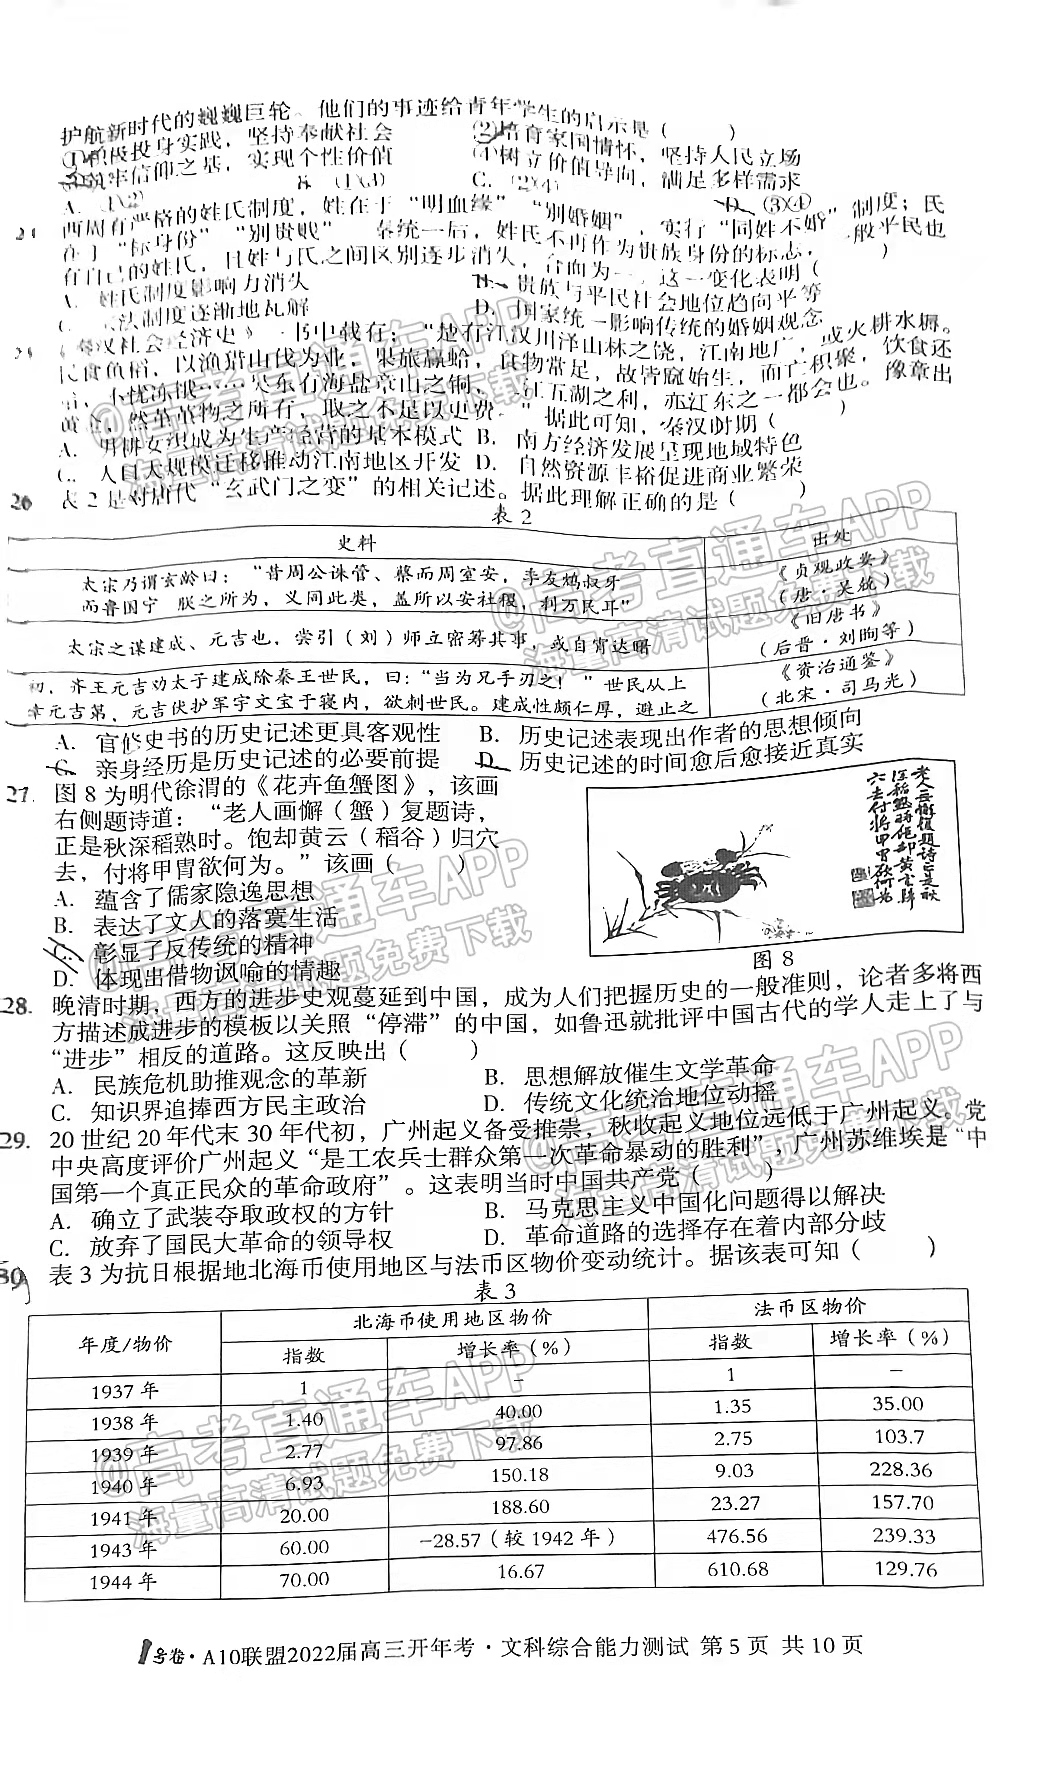 护航新时代的巍巍巨轮。他们的事迹给青年学生的启示是（　　）
①积极投身实践，坚持奉献社会　②培育家国情怀，坚持人民立场
③筑牢信仰之基，实现个性价值　④树立价值导向，满足多样需求
A. ①②　B. ①③　C. ②④　D. ③④
西周有严格的姓氏制度，姓在于“明血缘”“别婚姻”，实行“同姓不婚”制度；氏
在于“标身份”“别贵贱”　秦统一后，姓氏不再作为贵族身份的标志，一般平民也
有自己的姓氏，且姓与氏之间区别逐步消失，合而为一，这一变化表明（　　）
A. 姓氏制度影响力消失　B. 贵族与平民社会地位趋向平等
C. 宗法制度逐渐地瓦解　D. 国家统一影响传统的婚姻观念
《秦汉社会经济史》一书中载有：“楚有江汉川泽山林之饶，江南地广，或火耕水耨。
民食鱼稻，以渔猎山伐为业，果蓏蠃蛤，食物常足，故呰窳媮生，而亡积聚，饮食还
给，不忧冻饿……吴东有海盐章山之铜，三江五湖之利，亦江东之一都会也。豫章出
黄金，然堇堇物之所有，取之不足以更费。”据此可知，秦汉时期（　　）
A. 男耕女织成为生产经营的基本模式　B. 南方经济发展呈现地域特色
C. 人口大规模迁移推动江南地区开发　D. 自然资源丰裕促进商业繁荣
26　表 2 是对唐代“玄武门之变”的相关记述。据此理解正确的是（　　）
表 2
史料　出处
太宗乃谓玄龄曰：“昔周公诛管、蔡而周室安，季友鸩叔牙　《贞观政要》
而鲁国宁　朕之所为，义同此类，盖所以安社稷，利万民耳”　（唐·吴兢）
太宗之谋建成、元吉也，尝引（刘）师立密筹其事，或自宵达曙　《旧唐书》
（后晋·刘昫等）
初，齐王元吉劝太子建成除秦王世民，曰：“当为兄手刃之！”世民从上　《资治通鉴》
幸元吉第，元吉伏护军宇文宝于寝内，欲刺世民。建成性颇仁厚，遽止之　（北宋·司马光）
A. 官修史书的历史记述更具客观性　B. 历史记述表现出作者的思想倾向
C. 亲身经历是历史记述的必要前提　D. 历史记述的时间愈后愈接近真实
27. 图 8 为明代徐渭的《花卉鱼蟹图》，该画
右侧题诗道：“老人画懈（蟹）复题诗，
正是秋深稻熟时。饱却黄云（稻谷）归穴
去，付将甲胄欲何为。”该画（　　）
A. 蕴含了儒家隐逸思想
B. 表达了文人的落寞生活
C. 彰显了反传统的精神
D. 体现出借物讽喻的情趣
图 8
28. 晚清时期，西方的进步史观蔓延到中国，成为人们把握历史的一般准则，论者多将西
方描述成进步的模板以关照“停滞”的中国，如鲁迅就批评中国古代的学人走上了与
“进步”相反的道路。这反映出（　　）
A. 民族危机助推观念的革新　B. 思想解放催生文学革命
C. 知识界追捧西方民主政治　D. 传统文化统治地位动摇
29. 20 世纪 20 年代末 30 年代初，广州起义备受推崇，秋收起义地位远低于广州起义。党
中央高度评价广州起义“是工农兵士群众第一次革命暴动的胜利”，广州苏维埃是“中
国第一个真正民众的革命政府”。这表明当时中国共产党（　　）
A. 确立了武装夺取政权的方针　B. 马克思主义中国化问题得以解决
C. 放弃了国民大革命的领导权　D. 革命道路的选择存在着内部分歧
30　表 3 为抗日根据地北海币使用地区与法币区物价变动统计。据该表可知（　　）
表 3
年度/物价　北海币使用地区物价　法币区物价
指数　增长率（%）　指数　增长率（%）
1937 年　1　-　1　-
1938 年　1.40　40.00　1.35　35.00
1939 年　2.77　97.86　2.75　103.7
1940 年　6.93　150.18　9.03　228.36
1941 年　20.00　188.60　23.27　157.70
1943 年　60.00　-28.57（较 1942 年）　476.56　239.33
1944 年　70.00　16.67　610.68　129.76
1号卷·A10联盟2022届高三开年考·文科综合能力测试 第 5 页 共 10 页
@高考直通车APP
海量高清试题免费下载